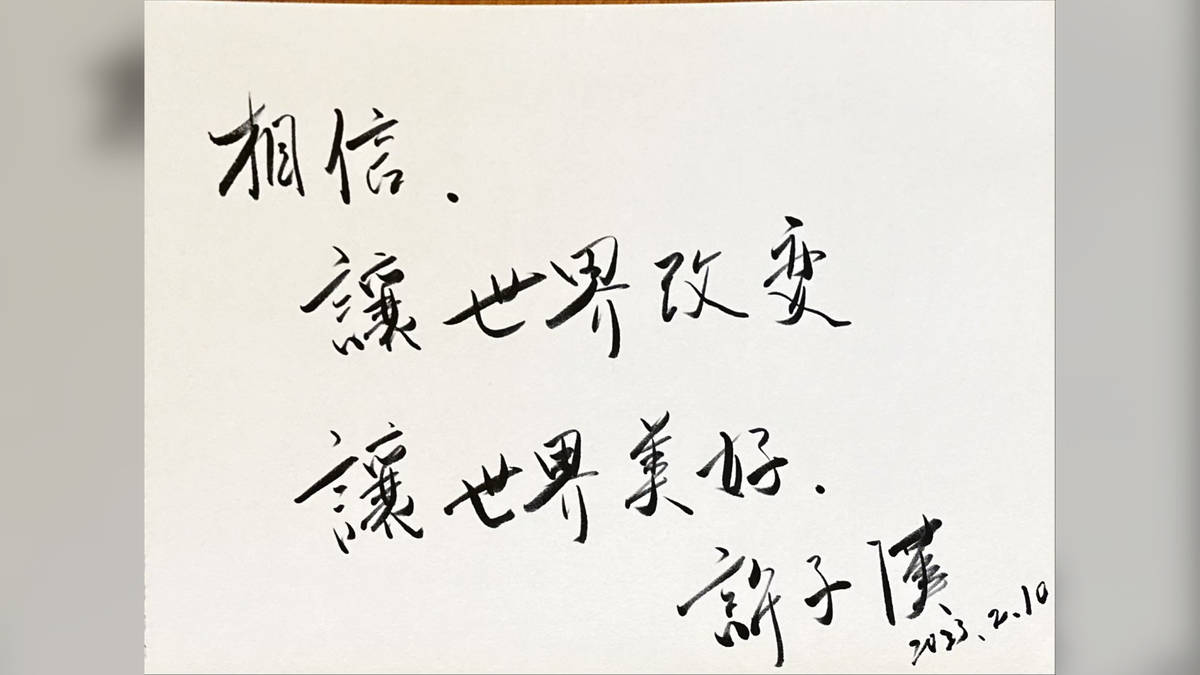 相信.
讓世界改变
讓世界美好.
許子漢
2023.2.10